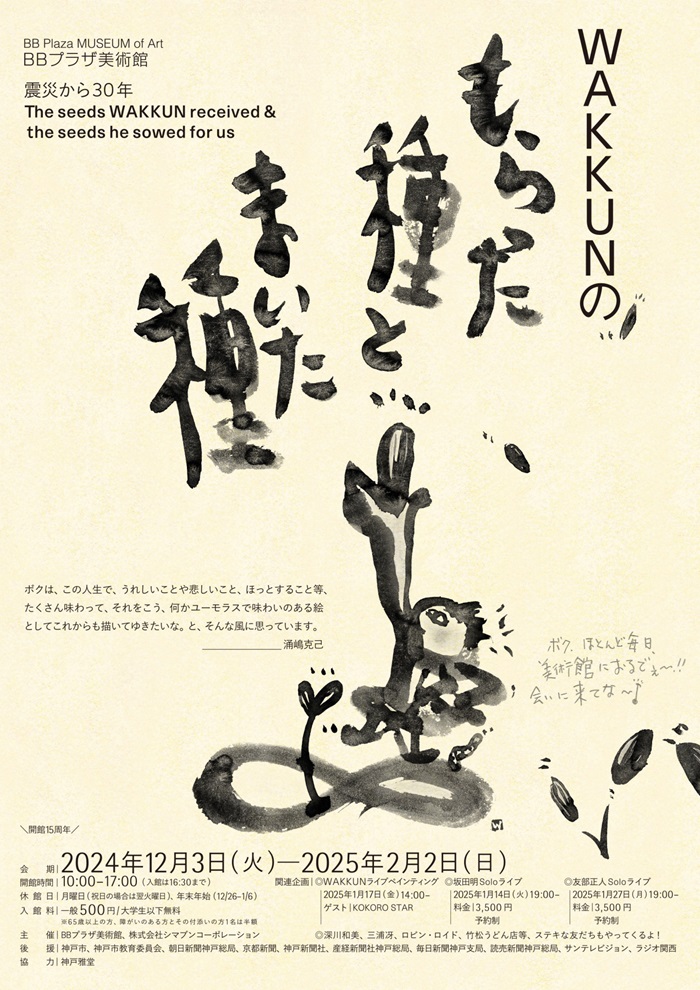 BB Plaza MUSEUM of Art
BBプラザ美術館
震災から30年
The seeds WAKKUN received &
the seeds he sowed for us
WAKKUNの
もらった
種と
まいた
種
ボクは、この人生で、うれしいことや悲しいこと、ほっとすること等、
たくさん味わって、それをこう、何かユーモラスで味わいのある絵
としてこれからも描いてゆきたいな。と、そんな風に思っています。
涌嶋克己
ボク、ほとんど毎日、
美術館におるでぇ〜!!
会いに来てな〜♪
W
＼開館15周年／
会期 2024年12月3日(火)—2025年2月2日(日)
開館時間 10:00-17:00（入館は16:30まで）
休館日 月曜日（祝日の場合は翌火曜日）、年末年始（12/26-1/6）
入館料 一般500円/大学生以下無料
※65歳以上の方、障がいのある方とその付添いの方1名は半額
関連企画 ◎WAKKUNライブペインティング
2025年1月17日(金)14:00-
ゲスト KOKORO STAR
◎坂田明Soloライブ
2025年1月14日(火)19:00-
料金 3,500円
予約制
◎友部正人Soloライブ
2025年1月27日(月)19:00-
料金 3,500円
予約制
◎深川和美、三浦冴、ロビン・ロイド、竹松うどん店等、ステキな友だちもやってくるよ！
主催 BBプラザ美術館、株式会社シマブンコーポレーション
後援 神戸市、神戸市教育委員会、朝日新聞神戸総局、京都新聞、神戸新聞社、産経新聞社神戸総局、毎日新聞神戸支局、読売新聞神戸総局、サンテレビジョン、ラジオ関西
協力 神戸雅堂